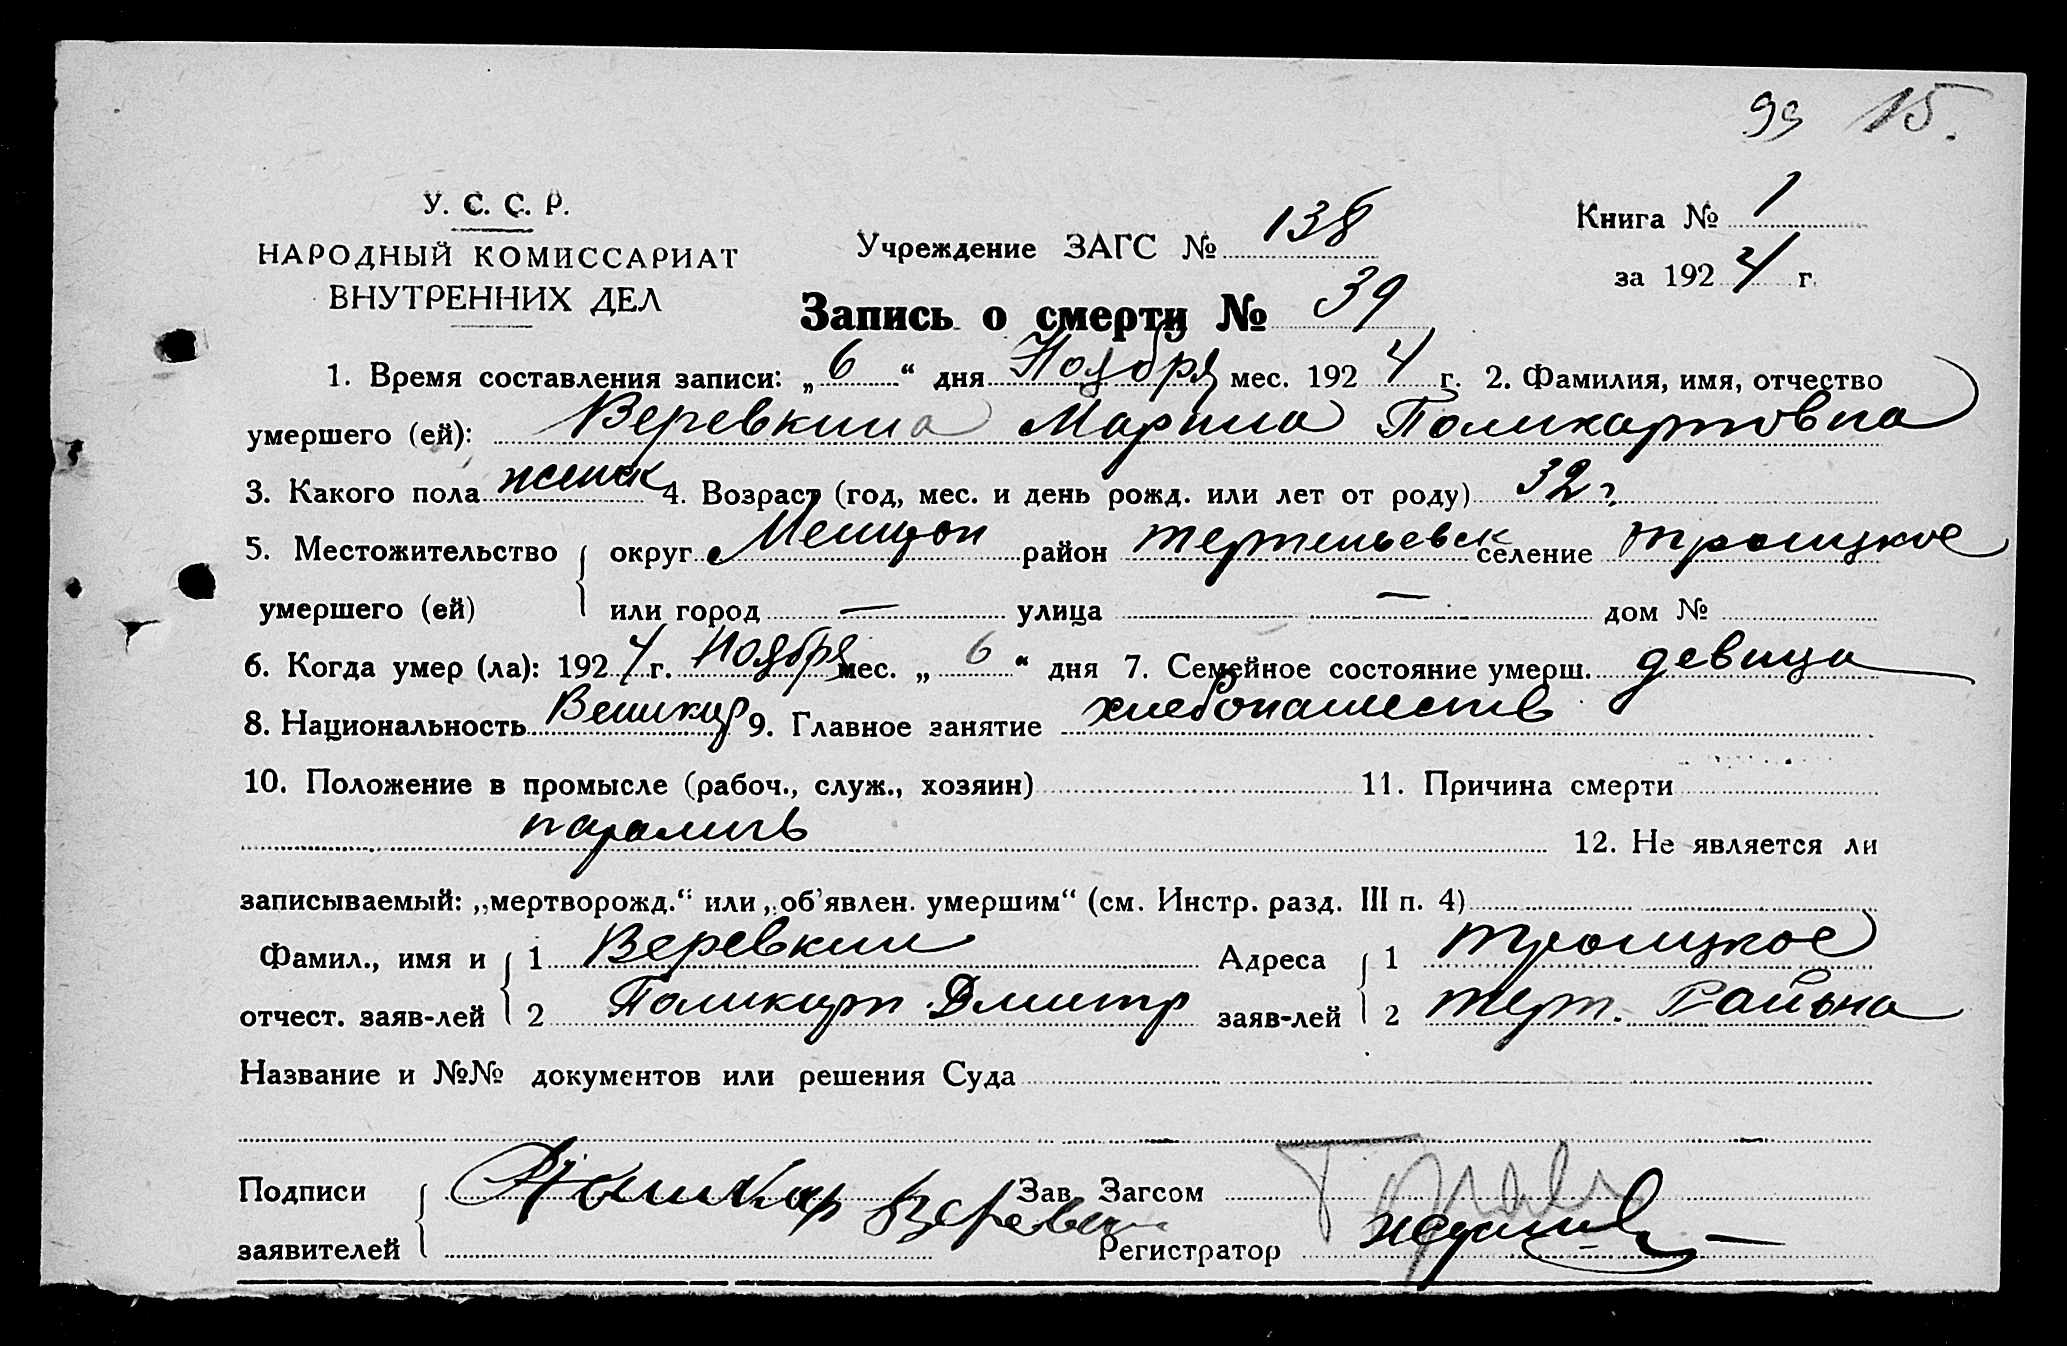 99 15.
У. С. С. Р.
НАРОДНЫЙ КОМИССАРИАТ
ВНУТРЕННИХ ДЕЛ
Учреждение ЗАГС № 138
Книга № 1
за 1924 г.
Запись о смерти № 39
1. Время составления записи: „6“ дня Ноября мес. 1924 г. 2. Фамилия, имя, отчество
умершего (ей): Веревкина Марина Поликарповна
3. Какого пола женск 4. Возраст (год, мес. и день рожд. или лет от роду) 32 г.
5. Местожительство округ район селение Троицкое
умершего (ей) или город — улица — дом №
6. Когда умер (ла): 1924 г. Ноября мес. „6“ дня 7. Семейное состояние умерш. девица
8. Национальность Великор 9. Главное занятие хлебопашеств
10. Положение в промысле (рабоч., служ., хозяин) 11. Причина смерти
паралич 12. Не является ли
записываемый: „мертворожд.“ или „об'явлен. умершим“ (см. Инстр. разд. III п. 4)
Фамил., имя и 1 Веревкин Адреса 1 Троицкое
отчест. заяв-лей 2 Поликарп Дмитр заяв-лей 2 Терп. Района
Название и №№ документов или решения Суда
Подписи Зав. Загсом
заявителей Регистратор